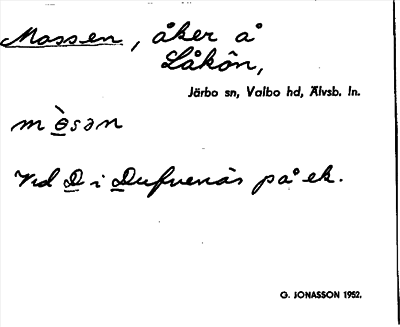 Mossen, åker å
Låkôn,
Järbo sn, Valbo hd, Älvsb. ln.
m ò̱sən
Vid D i Dufvenäs på ek.
G. JONASSON 1952.